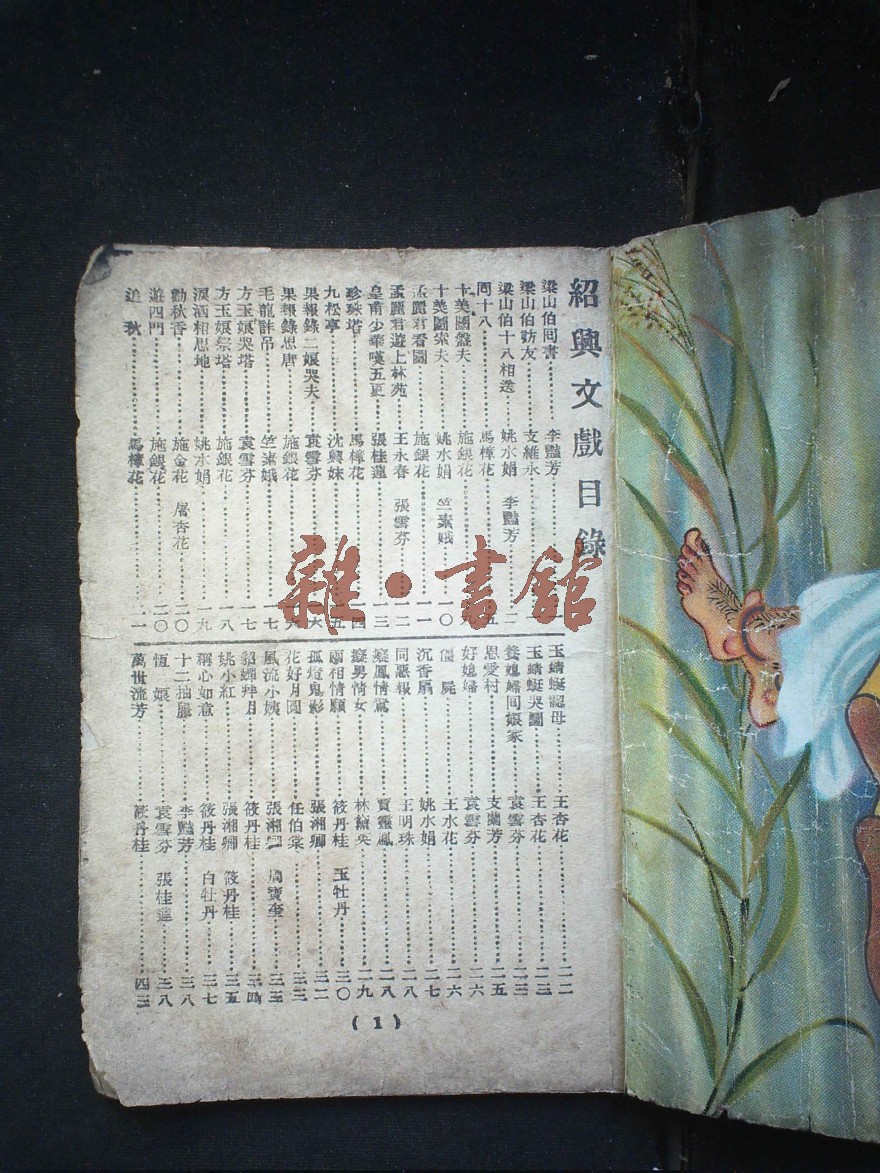 紹興文戲目錄
梁山伯同書 李豔芳
梁山伯訪友 支維永
梁山伯十八相送 姚水娟 李豔芳 二
同十八 馬樟花
十美圖盤夫 施銀花
十美圖索夫 姚水娟 竺素娥 一〇
孟麗君看圖 施銀花 一一
孟麗君遊上林苑 王永春 張雪芬 一二
皇甫少華嘆五更 張桂蓮 一三
珍珠塔 馬樟花 四
九松亭 沈興妹 五
果報錄二娘哭夫 袁雪芬 六
果報錄思唐 施銀花 六
毛龍詳吊 竺素娥 七
方玉娘哭塔 袁雪芬 一七
方玉娘祭塔 施銀花 一八
淚洒相思地 姚水娟 一九
勸秋香 施金花 屠杏花 二〇
遊四門 施銀花 二〇
追秋 馬樟花 二一
玉蜻蜓認母 王杏花 二二
玉蜻蜓哭圖 王杏花 二三
養媳婦回娘家 袁雪芬 二三
恩愛村 支蘭芳 二五
好媳婦 袁雪芬 二六
僵屍 王水花 二六
沉香扇 姚水娟 二七
同惡報 王明珠 二八
癡鳳情鴛 賈靈鳳 二八
癡男情女 林黛英 二九
兩相情願 筱丹桂 玉牡丹 三〇
孤燈鬼影 張湘卿 三二
花好月圓 任伯棠 三三
風流小姨 張湘卿 周寶奎 三三
貂蟬拜月 筱丹桂 三四
姚小紅 張湘卿 筱丹桂 三五
稱心如意 筱丹桂 白牡丹 三七
十二抽屜 李豔芳 三八
恆娘 袁雪芬 張桂蓮 三八
萬世流芳 筱丹桂 四三
(1)
雜·書館